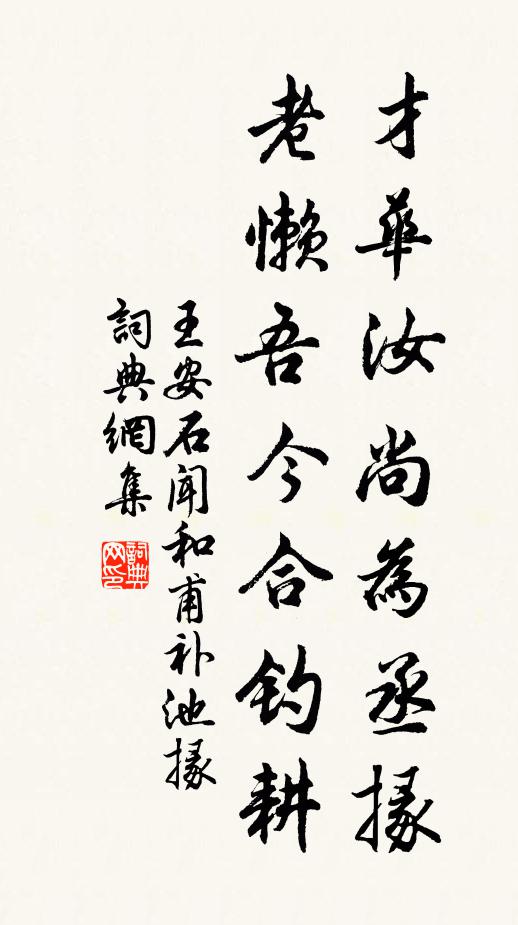 才華汝尚為丞掾
老懒吾今合钓耕
王安石闻和甫补池掾
詞典網集
詞典网印